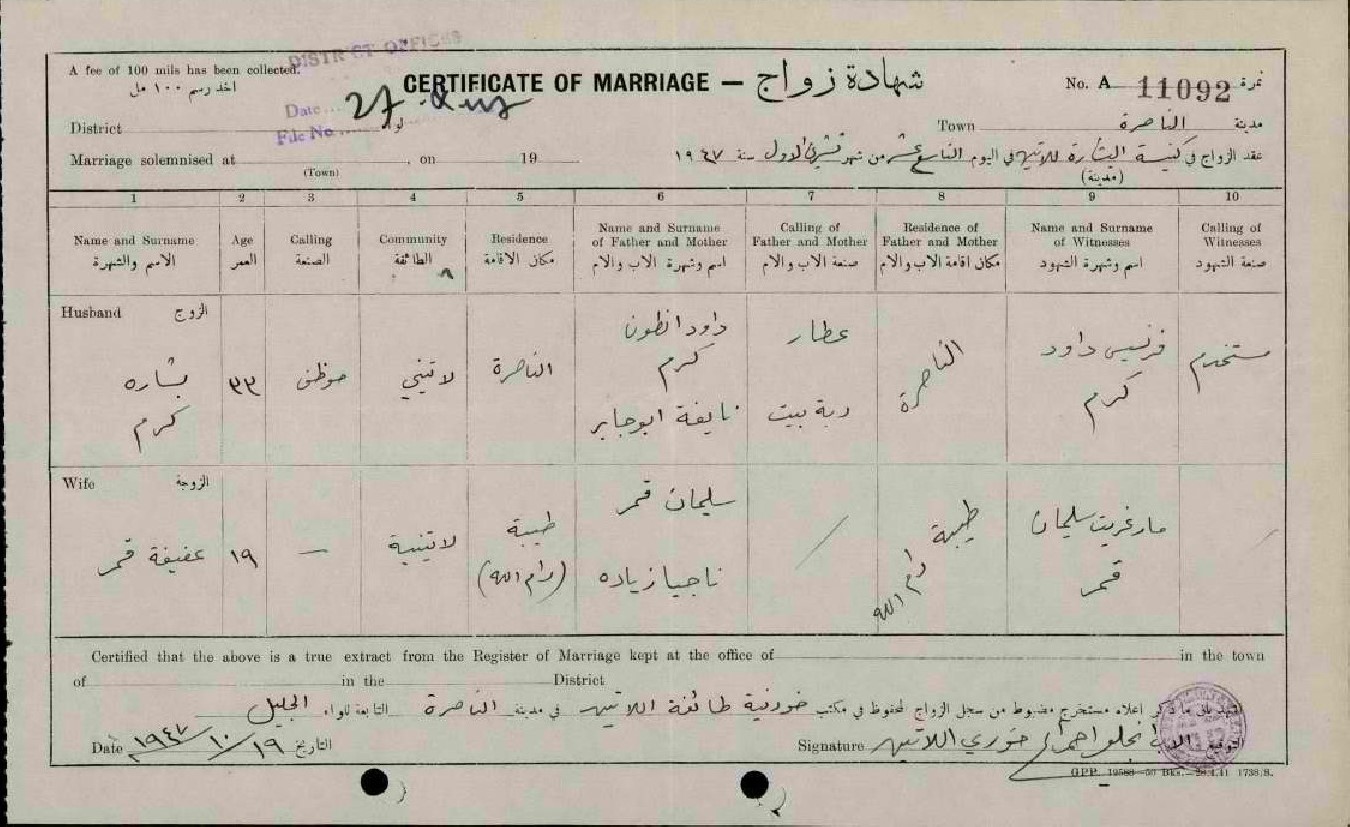 DISTRICT OFFICES
A fee of 100 mils has been collected.
اخذ رسم ١٠٠ مل
CERTIFICATE OF MARRIAGE — شهادة زواج
No. A 11092 نمرة
Date
File No
District
لواء
Town الناصرة مدينة
Marriage solemnised at , on 19 .
(Town)
عقد الزواج في كنيسة البشارة للاتين في اليوم التاسع عشر من شهر تشرين الاول سنة ١٩٤٧
(مدينة)
1 2 3 4 5 6 7 8 9 10
Name and Surname
الاسم والشهرة
Age
العمر
Calling
الصنعة
Community
الطائفة
Residence
مكان الاقامة
Name and Surname
of Father and Mother
اسم وشهرة الاب والام
Calling of
Father and Mother
صنعة الاب والام
Residence of
Father and Mother
مكان اقامة الاب والام
Name and Surname
of Witnesses
اسم وشهرة الشهود
Calling of
Witnesses
صنعة الشهود
Husband الزوج
بشاره
كرم
٣٣
موظف
لاتيني
الناصرة
داود انطون
كرم
نايفة ابو جابر
عطار
ربة بيت
الناصرة
فرنسيس داود
كرم
مستخدم
Wife الزوجة
عفيفة قمر
١٩
—
لاتينية
طيبة
(رام الله)
سليمان قمر
ناجيا زياده
طيبة
رام الله
مارغريت سليمان
قمر
Certified that the above is a true extract from the Register of Marriage kept at the office of in the town
of in the District
اعلاه مستخرج مضبوط من سجل الزواج المحفوظ في مكتب خورنية طائفة اللاتين في مدينة الناصرة التابعة للواء الجليل
Date ١٩٤٧/١٠/١٩ التاريخ
Signature الاب خوري اللاتين
G.P.P. 19588—50 Bks.—28.4.41 1738/S.